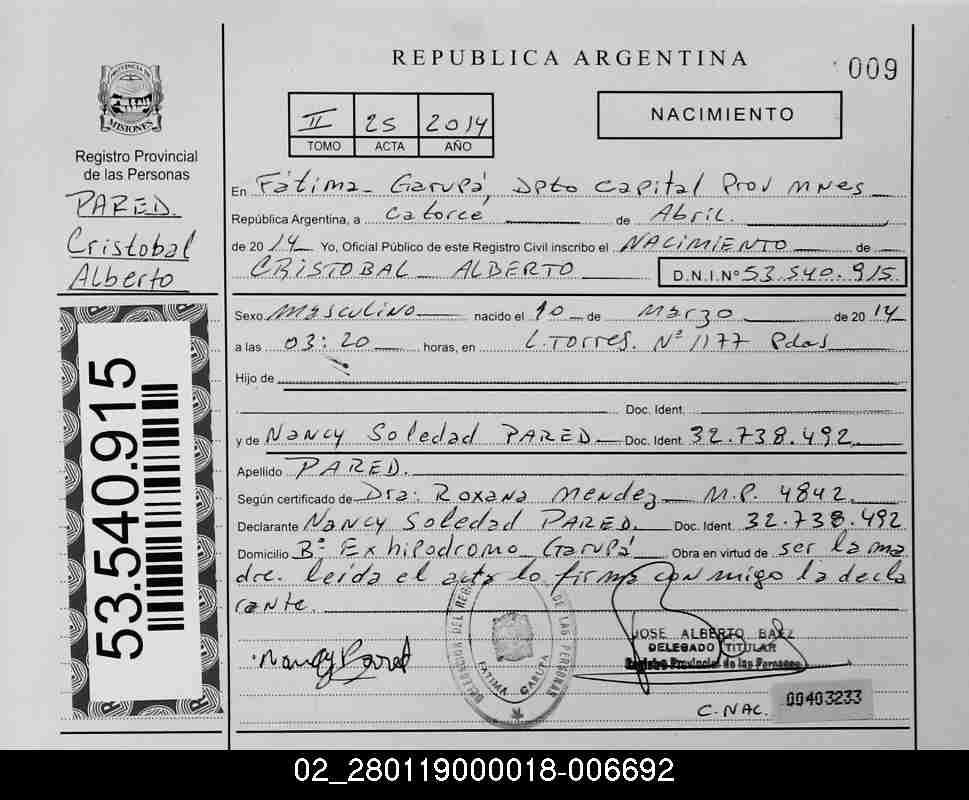 REPUBLICA ARGENTINA
009
PROVINCIA DE
MISIONES
Registro Provincial
de las Personas
PARED.
Cristobal
Alberto
53.540.915
II 25 2014
TOMO ACTA AÑO
NACIMIENTO
En Fátima - Garupá, Dpto Capital Prov Mnes
República Argentina, a catorce de Abril.
de 2014 Yo, Oficial Público de este Registro Civil inscribo el NACIMIENTO de
CRISTOBAL ALBERTO D.N.I.Nº 53.540.915
Sexo masculino nacido el 10 de Marzo de 2014
a las 03:20 horas, en L. Torres. Nº 1177 Pdas
Hijo de
Doc. Ident.
y de Nancy Soledad PARED Doc. Ident. 32.738.492
Apellido PARED.
Según certificado de Dra: Roxana Mendez M.P. 4842
Declarante Nancy Soledad PARED. Doc. Ident. 32.738.492
Domicilio Bº Exhipodromo Garupá Obra en virtud de ser la ma
dre. leída el acta lo firma conmigo la decla
rante.
Nancy Pared
DELEGACION DEL REG. DE LAS PERSONAS
FATIMA GARUPA
JOSE ALBERTO BAEZ
DELEGADO TITULAR
Registro Provincial de las Personas
C. NAC. 00403233
02_280119000018-006692